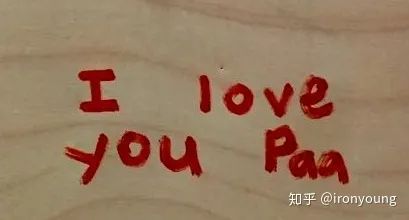 I love
you Paa
知乎 @ironyoung